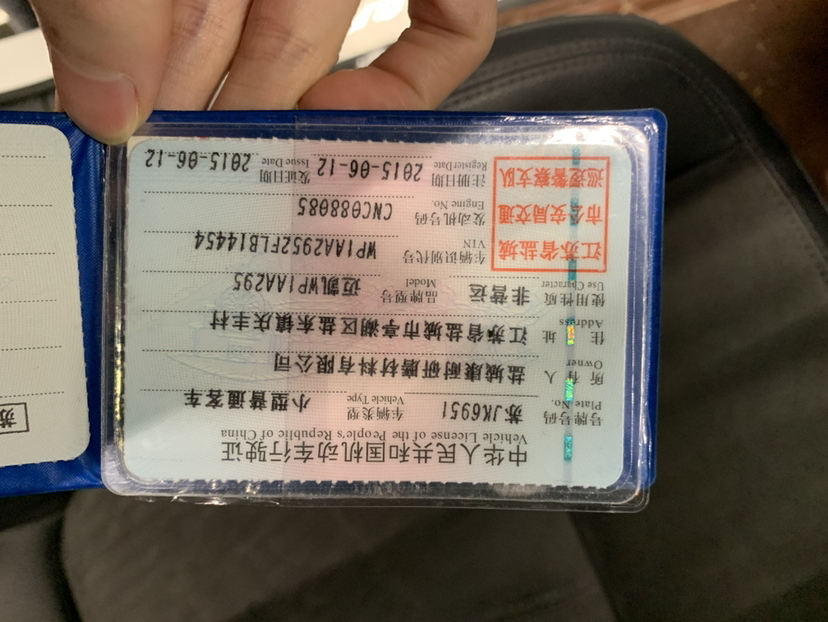 中华人民共和国机动车行驶证
Vehicle License of the People's Republic of China
号牌号码 苏JK6951 车辆类型 小型普通客车
Plate No. Vehicle Type
所有人 盐城康耐研磨材料有限公司
Owner
住址 江苏省盐城市亭湖区盐东镇庆丰村
Address
使用性质 非营运 品牌型号 迈凯WP1AA295
Use Character Model
江苏省盐城
市公安局交通
巡逻警察支队
车辆识别代号 WP1AA2952FLB14454
VIN
发动机号码 CNC088085
Engine No.
注册日期 2015-06-12 发证日期 2015-06-12
Register Date Issue Date
苏